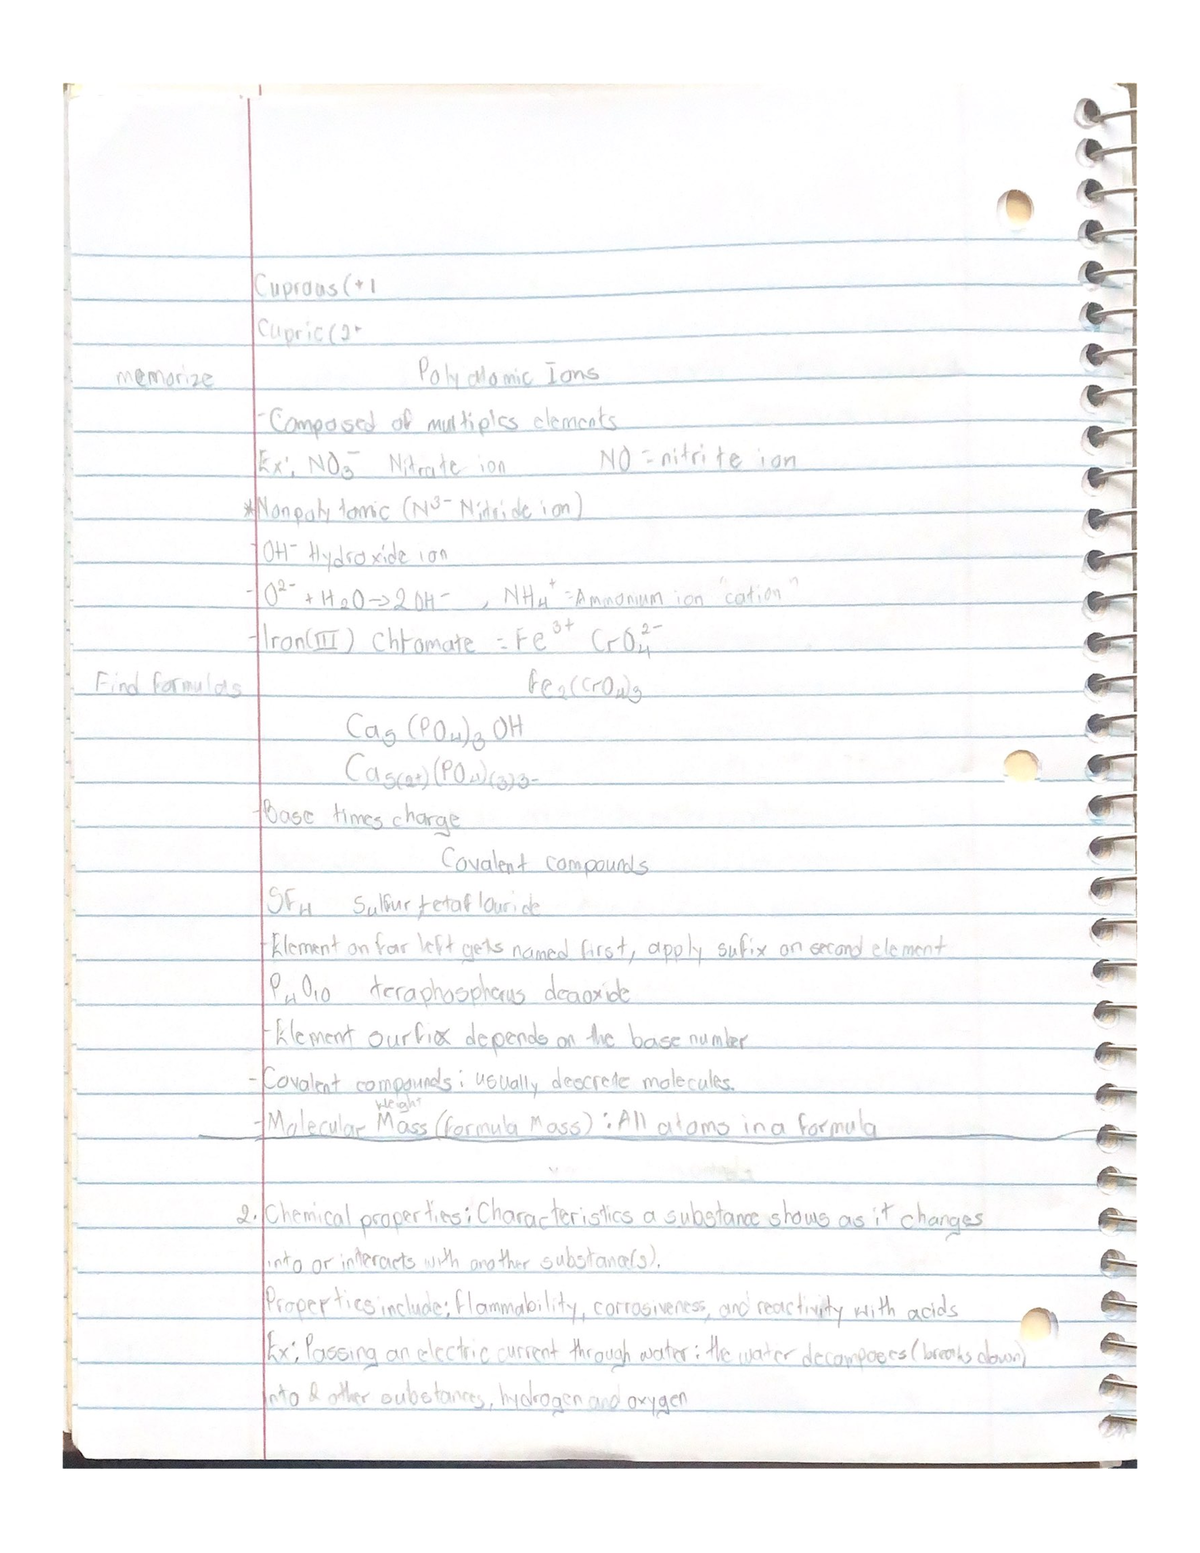 Cuprous (+1
Cupric (2+
memorize Polyatomic Ions
-Composed of multiples elements
Ex: NO3- Nitrate ion NO = nitrite ion
*Nonpolytomic (N3- Nitride ion)
-OH- Hydroxide ion
-O2- + H2O → 2OH- , NH4+ = Ammonium ion "cation"
-Iron(III) Chromate = Fe3+ CrO42-
Find formulas Fe2(CrO4)3
Ca5(PO4)3OH
Ca5(2+)(PO4)(3)3-
-Base times charge
Covalent compounds
SF4 Sulfur tetaflouride
-Element on far left gets named first, apply sufix on second element
P4O10 teraphosphorus decaoxide
-Element surfix depends on the base number
-Covalent compounds: usually descrete molecules.
weight
-Molecular Mass (formula Mass): All atoms in a formula
2. Chemical properties: Characteristics a substance shows as it changes
into or interacts with another substance(s).
Properties include: flammability, corrosiveness, and reactivity with acids
Ex: Passing an electric current through water: the water decomposes (breaks down)
into 2 other substances, hydrogen and oxygen